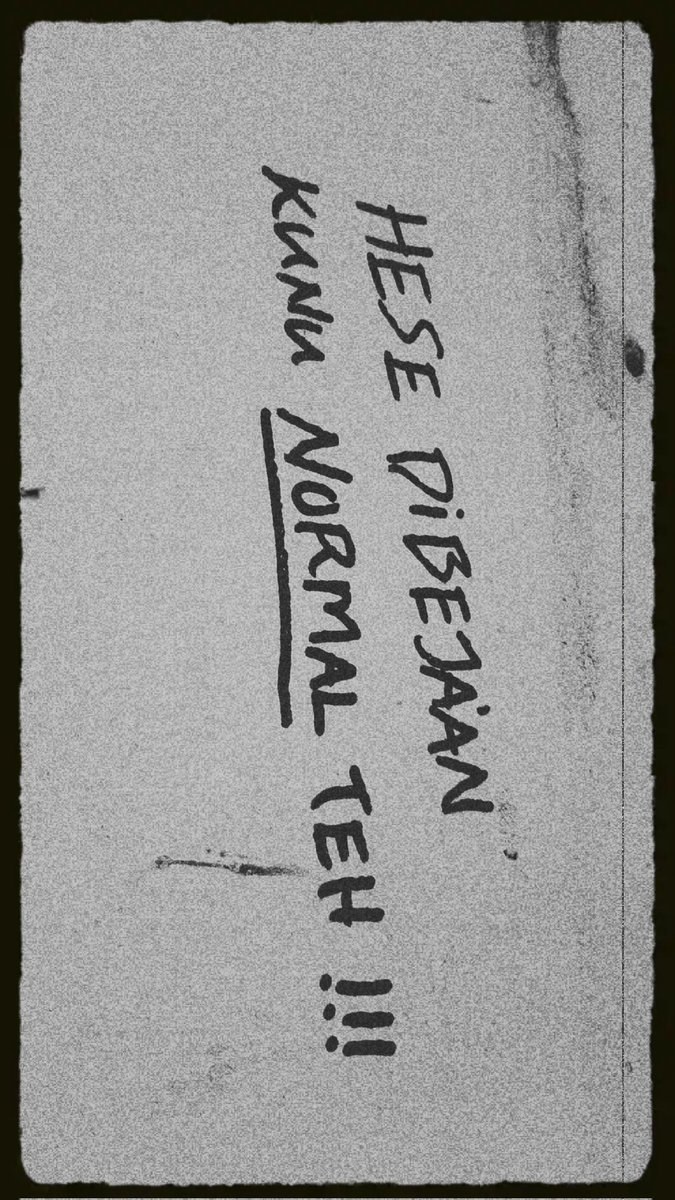 HESE DiBEJA'AN
KUNU NORMAL TEH !!!